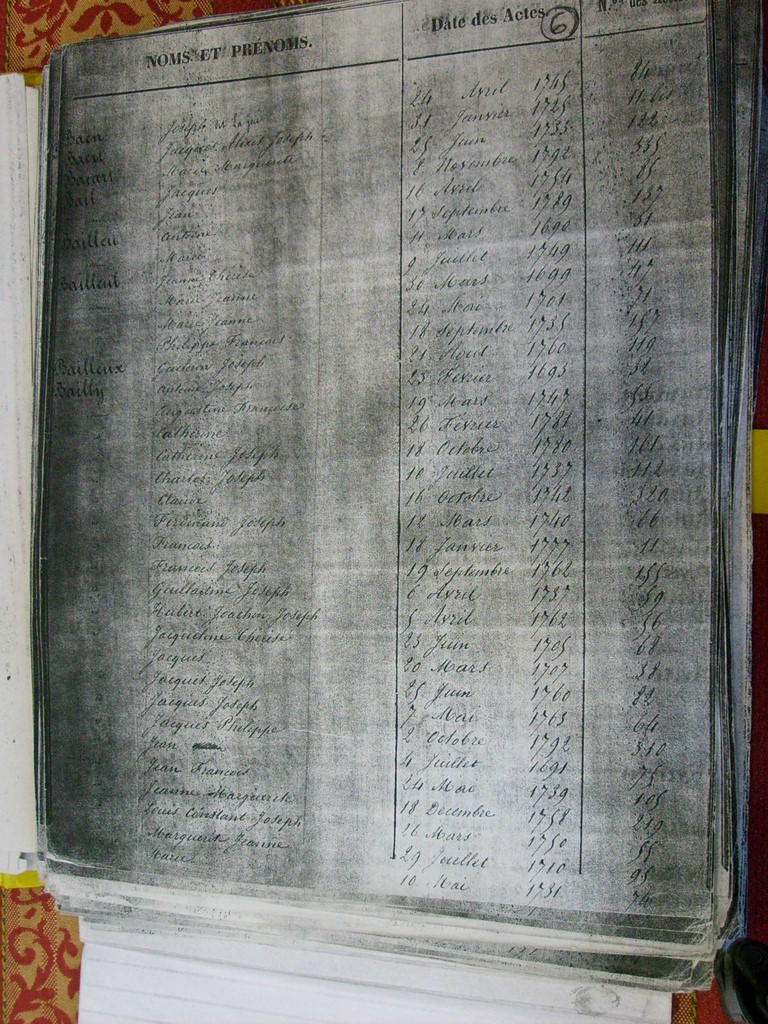 NOMS ET PRÉNOMS. Date des Actes 6 N.os des
Baen Joseph 24 Avril 1745 84
Baert Jacques Alexis Joseph 31 Janvier 1725 11 bis
Bacart Marie Marguerite 25 Juin 1735 122
Bail Jacques 8 Novembre 1792 535
Jean 16 Avril 1754 85
Bailleu Antoine 17 Septembre 1729 137
Marie 4 Mars 1690 31
Bailleul Jeanne Thérèse 9 Juillet 1749 111
Marie Jeanne 30 Mars 1699 47
Marie Jeanne 24 Mai 1701 71
Philippe François 18 Septembre 1735 157
Bailleux Guilain Joseph 21 Aout 1760 119
Bailly Antoine Joseph 23 Février 1693 32
Augustine Françoise 19 Mars 1747 53
Catherine 26 Février 1781 41
Catherine Joseph 18 Octobre 1780 161
Charles Joseph 10 Juillet 1737 112
Claude 16 Octobre 1742 320
Ferdinand Joseph 12 Mars 1740 66
François 18 Janvier 1777 11
François Joseph 19 Septembre 1762 155
Guillaume Joseph 6 Avril 1737 59
Hubert Joachim Joseph 5 Avril 1762 56
Jacqueline Thérèse 23 Juin 1705 68
Jacques 20 Mars 1707 38
Jacques Joseph 25 Juin 1760 82
Jacques Joseph 7 Mai 1763 64
Jacques Philippe 2 Octobre 1792 310
Jean 4 Juillet 1691 75
Jean François 24 Mai 1739 105
Jeanne Marguerite 18 Decembre 1758 219
Louis Constant Joseph 26 Mars 1750 55
Marguerite Jeanne 29 Juillet 1710 95
Marie 10 Mai 1731 74